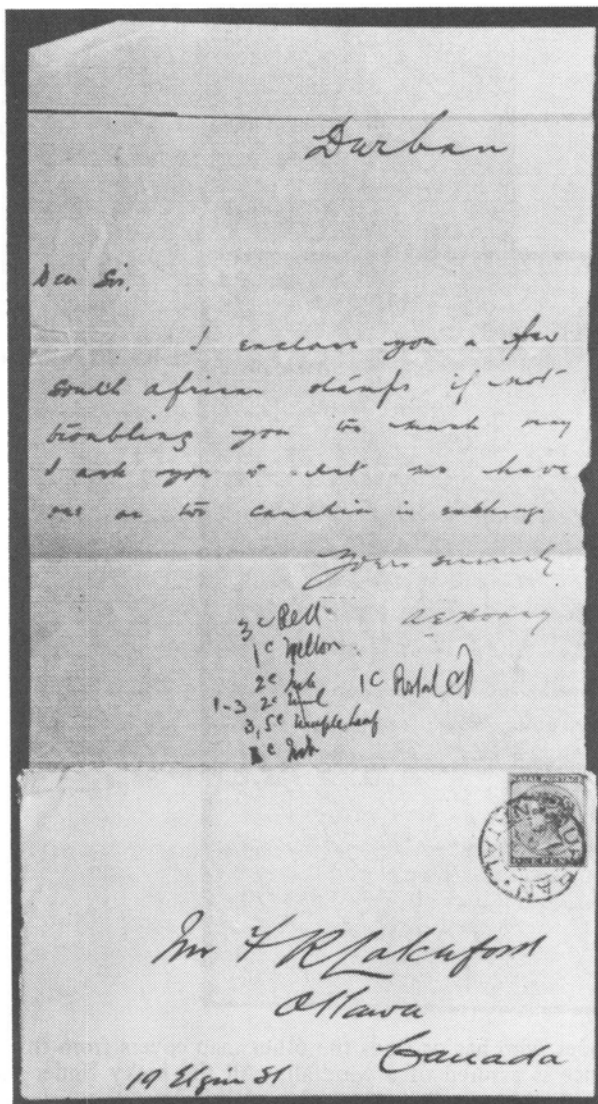 Durban
Dear Sir,
I enclose you a few
South African stamps if not
troubling you too much may
I ask you to let me have
one or two Canadian in exchange
Yours sincerely
3c Red
1c Yellow
2c
1-3 2c
3, 5c Mapleleaf
1c Postal Cd
NATAL POSTAGE
ONE PENNY
DURBAN
NATAL
Mr F R Latchford
Ottawa
Canada
19 Elgin St